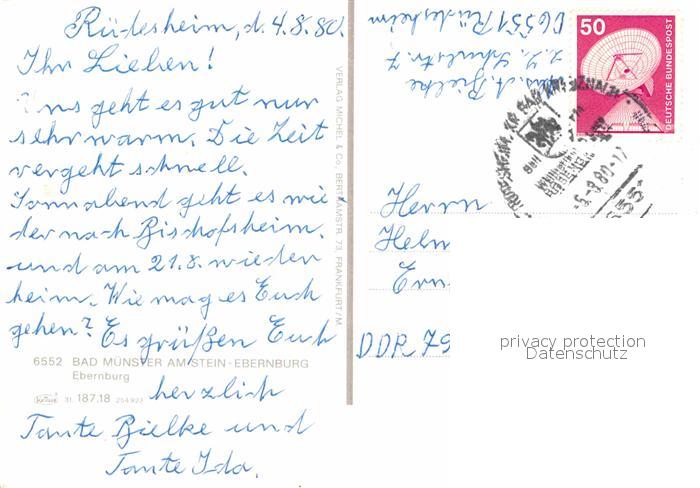 Rüdesheim, d. 4.8.80.
Ihr Lieben!
Uns geht es gut nur
sehr warm. Die Zeit
vergeht schnell.
Sonnabend geht es wie
der nach Bischofsheim.
und am 21.8. wieder
heim. Wie mag es Euch
gehen? Es grüßen Euch
herzlich
Tante Bielke und
Tante Ida.
6552 BAD MÜNSTER AM STEIN-EBERNBURG
Ebernburg
31 187.18 254 923
VERLAG MICHEL & Co., BERTRAMSTR. 73, FRANKFURT/M.
Bielke
D6551 Rüdesheim
50
DEUTSCHE BUNDESPOST
Herrn
Helm
Ern
DDR 79
privacy protection
Datenschutz